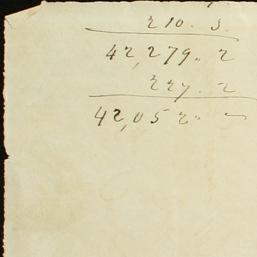 210. 3.
42,279.. 2
227. 2
42,052" –